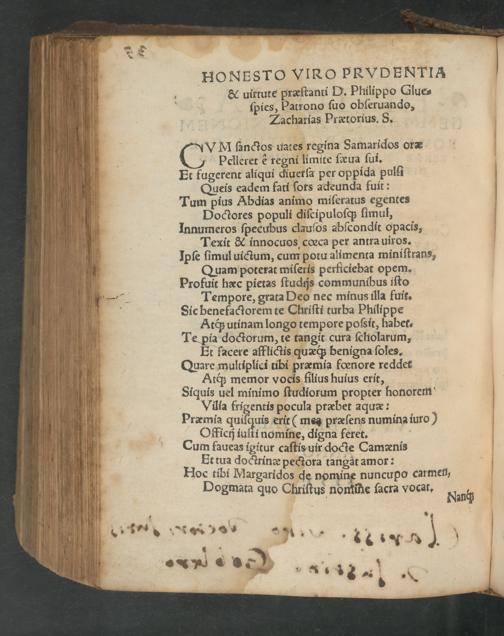 HONESTO VIRO PRVDENTIA
& uirtute præstanti D. Philippo Glue-
spies, Patrono suo obseruando,
Zacharias Prætorius. S.
CVM sanctos uates regina Samaridos oræ
Pelleret ê regni limite sæua sui.
Et fugerent aliqui diuersa per oppida pulsi
Queis eadem fati sors adeunda fuit:
Tum pius Abdias animo miseratus egentes
Doctores populi discipulosq; simul,
Innumeros specubus clausos abscondit opacis,
Texit & innocuos cœca per antra uiros.
Ipse simul uictum, cum potu alimenta ministrans,
Quam poterat miseris perficiebat opem.
Profuit hæc pietas studijs communibus isto
Tempore, grata Deo nec minus illa fuit.
Sic benefactorem te Christi turba Philippe
Atq; utinam longo tempore possit, habet.
Te pia doctorum, te tangit cura scholarum,
Et facere afflictis quæq; benigna soles.
Quare multiplici tibi præmia fœnore reddet
Atq; memor vocis filius huius erit,
Siquis uel minimo studiorum propter honorem
Vilia frigentis pocula præbet aquæ:
Præmia quisquis erit (mea præsens numina iuro)
Officij iusti nomine, digna feret.
Cum faueas igitur castis uir docte Camænis
Et tua doctrinæ pectora tangat amor:
Hoc tibi Margaridos de nomine nuncupo carmen,
Dogmata quo Christus nomine sacra vocat.
Nanq;